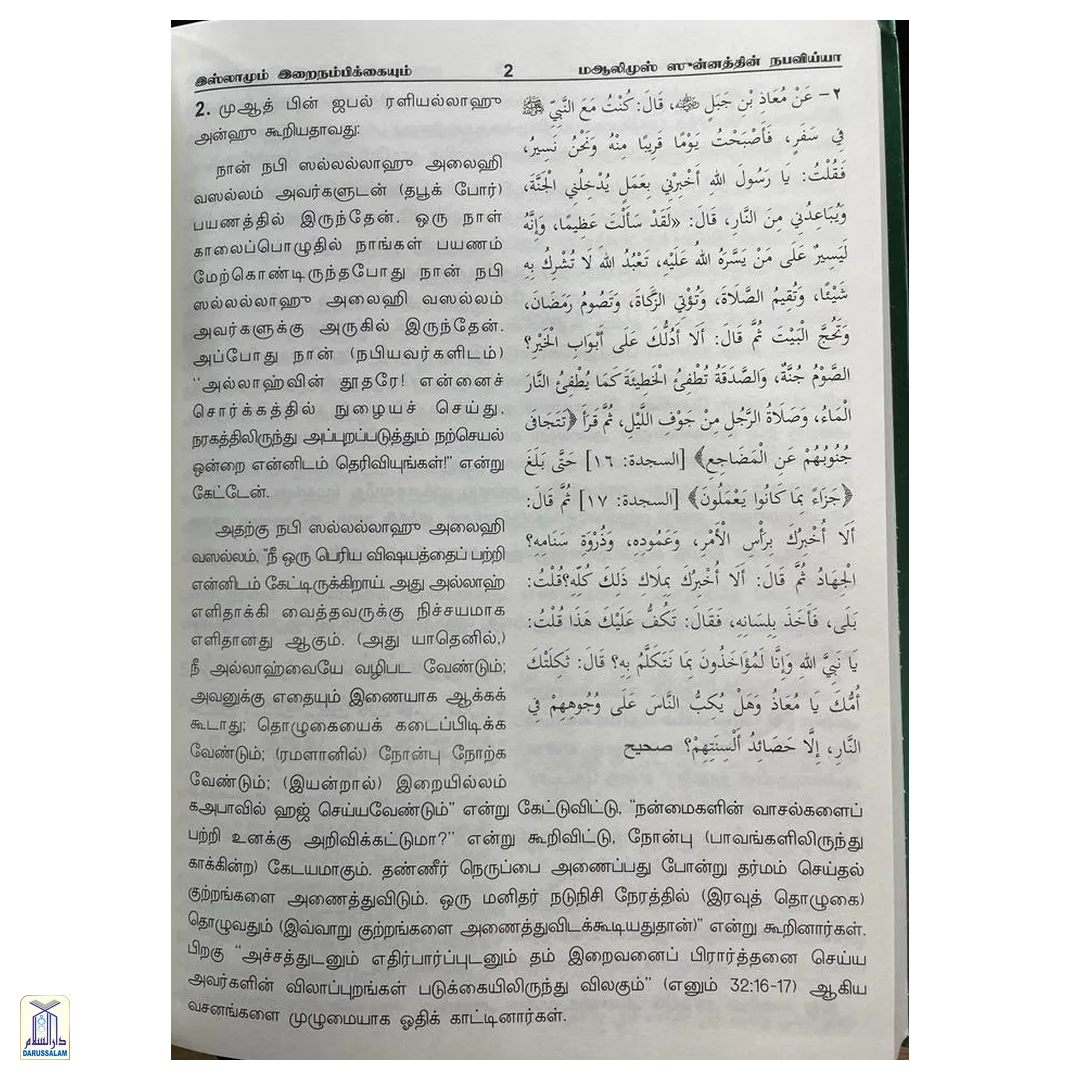 இஸ்லாமும் இறைநம்பிக்கையும் 2 மஆலிமுஸ் ஸுன்னத்தின் நபவிய்யா
2. முஆத் பின் ஜபல் ரளியல்லாஹு
அன்ஹு கூறியதாவது:
நான் நபி ஸல்லல்லாஹு அலைஹி
வஸல்லம் அவர்களுடன் (தபூக் போர்)
பயணத்தில் இருந்தேன். ஒரு நாள்
காலைப்பொழுதில் நாங்கள் பயணம்
மேற்கொண்டிருந்தபோது நான் நபி
ஸல்லல்லாஹு அலைஹி வஸல்லம்
அவர்களுக்கு அருகில் இருந்தேன்.
அப்போது நான் (நபியவர்களிடம்)
“அல்லாஹ்வின் தூதரே! என்னைச்
சொர்க்கத்தில் நுழையச் செய்து,
நரகத்திலிருந்து அப்புறப்படுத்தும் நற்செயல்
ஒன்றை என்னிடம் தெரிவியுங்கள்!” என்று
கேட்டேன்.
அதற்கு நபி ஸல்லல்லாஹு அலைஹி
வஸல்லம், “நீ ஒரு பெரிய விஷயத்தைப் பற்றி
என்னிடம் கேட்டிருக்கிறாய். அது அல்லாஹ்
எளிதாக்கி வைத்தவருக்கு நிச்சயமாக
எளிதானது ஆகும். (அது யாதெனில்,)
நீ அல்லாஹ்வையே வழிபட வேண்டும்;
அவனுக்கு எதையும் இணையாக ஆக்கக்
கூடாது; தொழுகையைக் கடைப்பிடிக்க
வேண்டும்; (ரமளானில்) நோன்பு நோற்க
வேண்டும்; (இயன்றால்) இறையில்லம்
٢- عَنْ مُعَاذِ بْنِ جَبَلٍ ﷺ، قَالَ: كُنْتُ مَعَ النَّبِيِّ ﷺ
فِي سَفَرٍ، فَأَصْبَحْتُ يَوْمًا قَرِيبًا مِنْهُ وَنَحْنُ نَسِيرُ،
فَقُلْتُ: يَا رَسُولَ اللهِ أَخْبِرْنِي بِعَمَلٍ يُدْخِلُنِي الْجَنَّةَ،
وَيُبَاعِدُنِي مِنَ النَّارِ، قَالَ: «لَقَدْ سَأَلْتَ عَظِيمًا، وَإِنَّهُ
لَيَسِيرٌ عَلَى مَنْ يَسَّرَهُ اللهُ عَلَيْهِ، تَعْبُدُ اللهَ لَا تُشْرِكُ بِهِ
شَيْئًا، وَتُقِيمُ الصَّلَاةَ، وَتُؤْتِي الزَّكَاةَ، وَتَصُومُ رَمَضَانَ،
وَتَحُجَّ الْبَيْتَ ثُمَّ قَالَ: أَلَا أَدُلُّكَ عَلَى أَبْوَابِ الْخَيْرِ؟
الصَّوْمُ جُنَّةٌ، وَالصَّدَقَةُ تُطْفِئُ الْخَطِيئَةَ كَمَا يُطْفِئُ النَّارَ
الْمَاءُ، وَصَلَاةُ الرَّجُلِ مِنْ جَوْفِ اللَّيْلِ، ثُمَّ قَرَأَ ﴿تَتَجَافَى
جُنُوبُهُمْ عَنِ الْمَضَاجِعِ﴾ [السجدة: ١٦] حَتَّى بَلَغَ
﴿جَزَاءً بِمَا كَانُوا يَعْمَلُونَ﴾ [السجدة: ١٧] ثُمَّ قَالَ:
أَلَا أُخْبِرُكَ بِرَأْسِ الْأَمْرِ، وَعَمُودِهِ، وَذُرْوَةِ سَنَامِهِ؟
الْجِهَادُ ثُمَّ قَالَ: أَلَا أُخْبِرُكَ بِمِلَاكِ ذَلِكَ كُلِّهِ؟قُلْتُ:
بَلَى، فَأَخَذَ بِلِسَانِهِ، فَقَالَ: تَكُفُّ عَلَيْكَ هَذَا قُلْتُ:
يَا نَبِيَّ اللهِ وَإِنَّا لَمُؤَاخَذُونَ بِمَا نَتَكَلَّمُ بِهِ؟ قَالَ: ثَكِلَتْكَ
أُمُّكَ يَا مُعَاذُ وَهَلْ يُكِبُّ النَّاسَ عَلَى وُجُوهِهِمْ فِي
النَّارِ، إِلَّا حَصَائِدُ أَلْسِنَتِهِمْ؟ صحيح
கஅபாவில் ஹஜ் செய்யவேண்டும்” என்று கேட்டுவிட்டு, “நன்மைகளின் வாசல்களைப்
பற்றி உனக்கு அறிவிக்கட்டுமா?” என்று கூறிவிட்டு, நோன்பு (பாவங்களிலிருந்து
காக்கின்ற) கேடயமாகும். தண்ணீர் நெருப்பை அணைப்பது போன்று தர்மம் செய்தல்
குற்றங்களை அணைத்துவிடும். ஒரு மனிதர் நடுநிசி நேரத்தில் (இரவுத் தொழுகை)
தொழுவதும் (இவ்வாறு குற்றங்களை அணைத்துவிடக்கூடியதுதான்)” என்று கூறினார்கள்.
பிறகு “அச்சத்துடனும் எதிர்பார்ப்புடனும் தம் இறைவனைப் பிரார்த்தனை செய்ய
அவர்களின் விலாப்புறங்கள் படுக்கையிலிருந்து விலகும்” (எனும் 32:16-17) ஆகிய
வசனங்களை முழுமையாக ஓதிக் காட்டினார்கள்.
دار السلام
DARUSSALAM